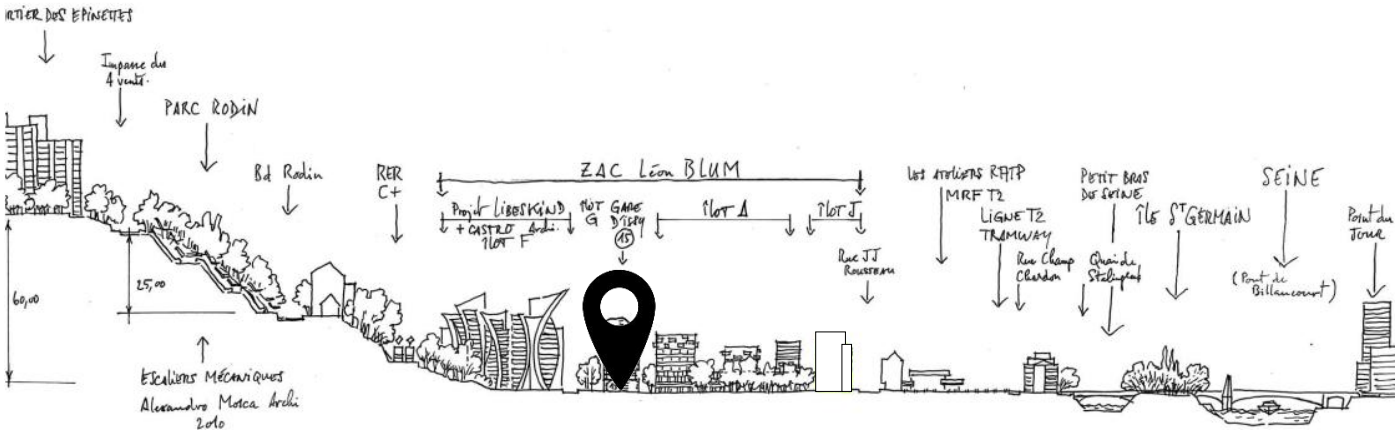 RTIER DES EPINETTES
Impasse des
4 vents.
PARC RODIN
Bd Rodin
RER
C+
ZAC Léon BLUM
Projet LIBESKIND
+ CASTRO Archi.
îlot F
îlot
G
GARE
D'ISSY
15
îlot A
îlot J
Rue JJ
ROUSSEAU
Les Ateliers RATP
MRF T2
LIGNE T2
TRAMWAY
Rue Champ
Chardon
PETIT BRAS
DE SEINE
Quai de
Stalingrad
ÎLE ST GERMAIN
SEINE
(Pont de
Billancourt)
Point du
JOUR
60,00
25,00
ESCALIERS MÉCANIQUES
Alexandro Mosca Archi
2010